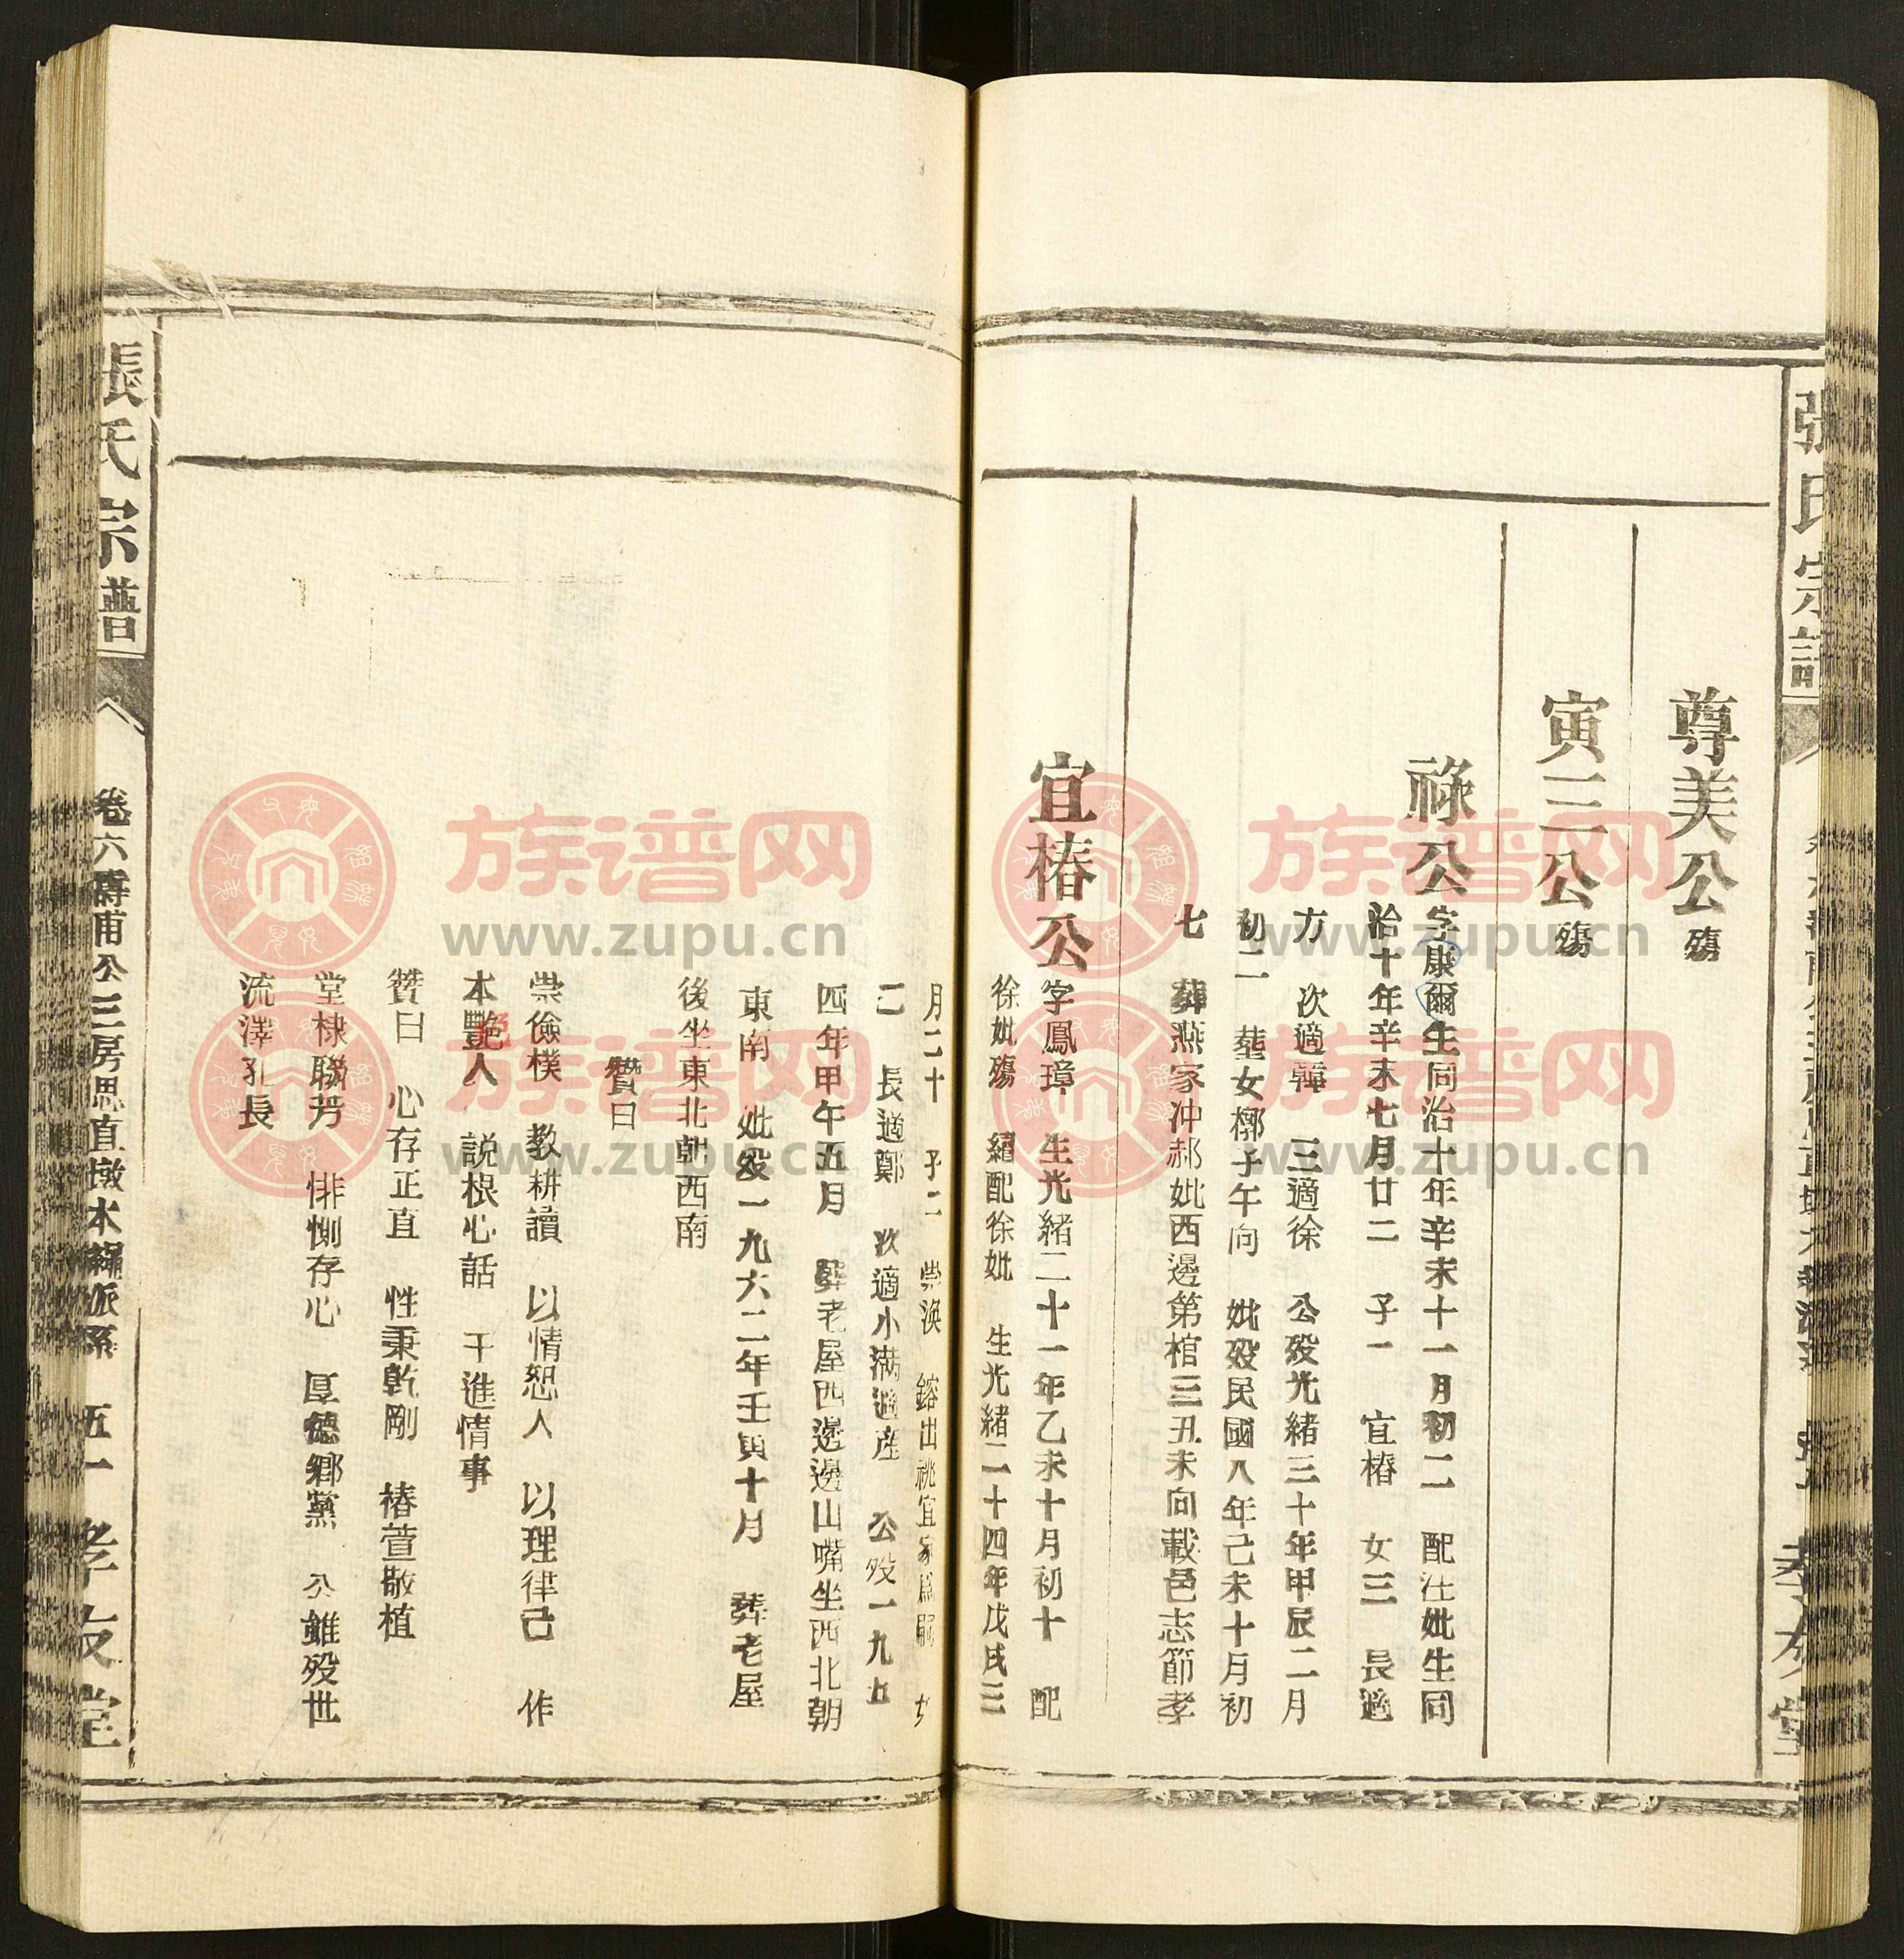 張氏宗譜
尊美公 殤
寅三公 殤
祿公 字康爾生同治十年辛未十一月初二 配汪妣生同
治十年辛未七月廿二 子一 宜椿 女三 長適
方 次適韓 三適徐 公歿光緒三十年甲辰二月
初二 葬女槨子午向 妣歿民國八年己未十月初
七 葬燕冢冲郝妣西邊第棺三丑未向載邑志節孝
宜椿公 字鳳璋 生光緒二十一年乙未十月初十 配
徐妣殤 續配徐妣 生光緒二十四年戊戌三
月二十 子二 崇渙 鎔出祧宜家爲嗣 女
二 長適鄭 次適小滿適産 公歿一九五
四年甲午五月 葬老屋西邊邊山嘴坐西北朝
東南 妣歿一九六二年壬寅十月 葬老屋
後坐東北朝西南
贊曰
崇儉樸 教耕讀 以情恕人 以理律己 作
本艷人 説根心話 干進情事
贊曰 心存正直 性秉乾剛 椿萱敬植
堂棣聯芳 悱惻存心 厚德鄉黨 公雖歿世
流澤孔長
張氏宗譜
卷六壽甫公三房思直墩本繩派系 五一 孝友堂
孝友堂
族谱网
www.zupu.cn
族谱网
www.zupu.cn
族谱网
www.zupu.cn
族谱网
www.zupu.cn